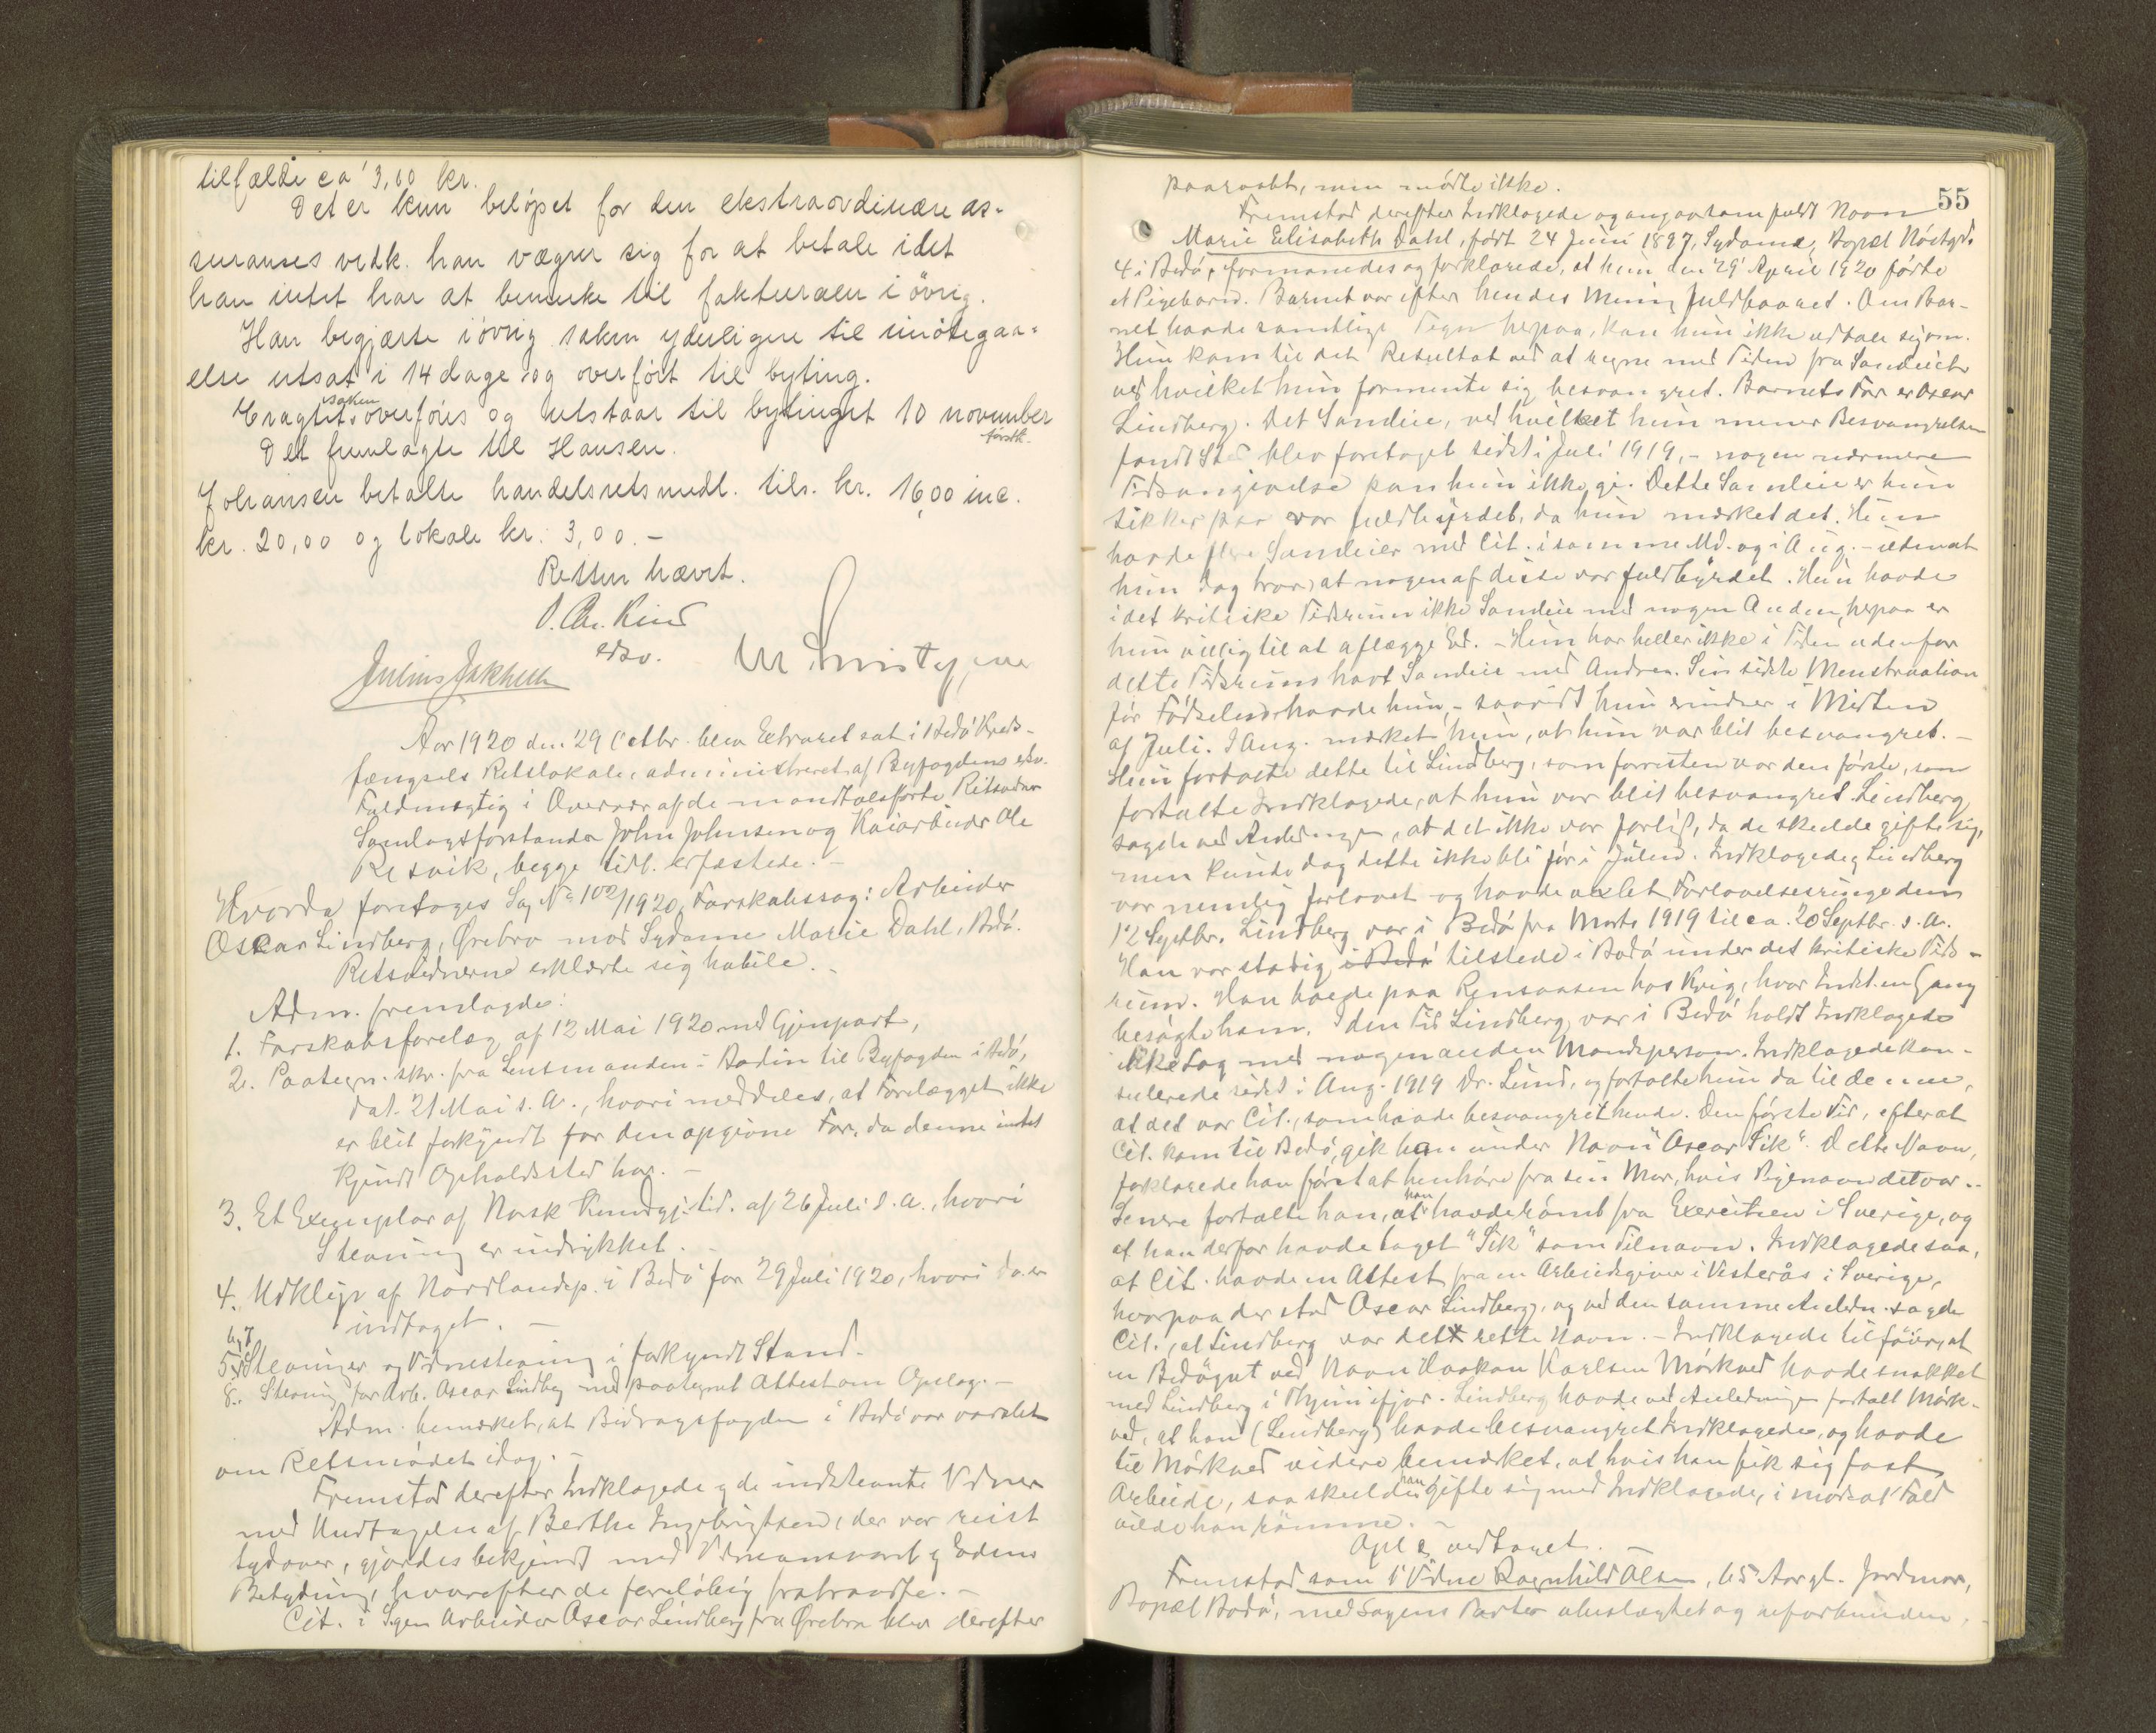 tilfælde ca 3,00 kr.
Det er kun beløpet for den ekstraordinære as-
suranses vedk. han vægrer sig for at betale idet
han intet har at bemerke til fakturaen i øvrig.
Han begjærte i øvrig saken yderligere til imøtegaa-
else utsat i 14 dage og overført til byting.
saken
Eragtet overføres og utstaar til bytinget 10 november
førstk.
Det fremlagte til Hansen.
Johansen betalte handelsretsmedl. tils. kr. 16,00 inc.
kr. 20,00 og lokale kr. 3,00.-
Retten hævet.
O. Chr. Rind
edsv.
Julius Jakhelln
Aar 1920 den 29 Octbr. blev Extraret sat i Bodø Kreds-
fængsels Retslokale, administreret af Byfogdens edsv.
Fuldmægtig i Overvær af de mandtalsførte Retsvidner
Samlagsforstander John Johnsen og Kaiarbeider Ole
Resvik, begge tidl. edfæstede.-
Hvorda foretoges Sag No 102/1920, Farskabssag: Arbeider
Oscar Lindberg, Ørebro mod Sydame Marie Dahl, Bodø.
Retsvidnerne erklærte sig habile.-
Adm. fremlagde:
1. Farskabsforelæg af 12 Mai 1920 med Gjenpart,
2. Paategn. skr. fra Lensmanden i Bodin til Byfogden i Bodø,
dat. 21 Mai s. A., hvori meddeles, at Forelægget ikke
er blit forkyndt for den opgivne Far, da denne intet
kjendt Opholdssted har.-
3. Et Exemplar af Norsk Kundgj. tid. af 26 Juli s. a., hvori
Stevning er indrykket.-
4. Udklip af Nordlandsp. i Bodø for 29 Juli 1920, hvori do. er
indtaget.-
6, 7
5. Stevninger og Vidnestevning i forkyndt Stand.
8. Stevning for Arb. Oscar Lindberg med paategnet Attest om Opslag.-
Adm. bemerket, at Bidragsfogden i Bodø var varslet
om Retsmødet idag.-
Fremstod derefter Indklagede og de indstevnte Vidner
med Undtagelse af Berthe Ingebrigtsen, der var reist
sydover, gjordes bekjendt med Vidneansvaret og Edens
Betydning, hvorefter de foreløbig fratraadte.-
Cit. i Sagen Arbeider Oscar Lindberg fra Ørebro blev derefter
55
paaraabt, men mødte ikke.
Fremstod derefter Indklagede og angav som fuldt Navn
Marie Elisabeth Dahl, født 24 Juni 1897, Sydame, Bopæl
4 i Bodø, formanedes og forklarede, at hun den 29 April 1920 fødte
et Pigebarn. Barnet var efter hendes Mening fuldbaaret. Om Bar-
net havde samtlige Tegn herpaa, kan hun ikke udtale sig om.
Hun kom til det Resultat ved at regne med Tiden fra Samleiet
ved hvilket hun formente sig besvangret. Barnets Far er Oscar
Lindberg. Det Samleie, ved hvilket hun mener Besvangrelsen
fandt Sted blev foretaget sidst i Juli 1919, - nogen nærmere
Tidsangivelse kan hun ikke gi. Dette Samleie er hun
sikker paa var fuldbyrdet, da hun merket det. Hun
havde flere Samleier med Cit. i samme Md. og i Aug. - uten at
hun dog tror, at nogen af disse var fuldbyrdet. Hun havde
i det kritiske Tidsrum ikke Samleie med nogen Anden, herpaa er
hun villig til at aflægge Ed. - Hun har heller ikke i Tiden udenfor
dette Tidsrum havt Samleie med Andre. Sin sidste Menstruation
før Fødselen havde hun, - saavidt hun erindrer i Midten
af Juli. I Aug. merket hun, at hun var blit besvangret.-
Hun fortalte dette til Lindberg, som forresten var den første, som
fortalte Indklagede, at hun var blit besvangret. Lindberg
sagde ved Anledningen, at det ikke var farligt, da de skulde gifte sig,
men kunde dog dette ikke bli før i Julen. Indklagede og Lindberg
var nemlig forlovet og havde vexlet Forlovelsesringe den
12 Septbr. Lindberg var i Bodø fra Marts 1919 til ca. 20 Septbr. s. A.
Han var stadig i Bodø tilstede i Bodø under det kritiske Tids-
rum. Han boede paa Rensaasen hos Krig, hvor Indkl. en Gang
besøgte ham. I den Tid Lindberg var i Bodø holdt Indklagede
ikke Lag med nogen anden Mandsperson. Indklagede kon-
sulerede sidst i Aug. 1919 Dr. Lund, og fortalte hun da til denne,
at det var Cit., som havde besvangret hende. Den første Tid, efter at
Cit. kom til Bodø, gik han under Navn "Oscar Sik". Dette Navn,
forklarede han først at henhøre fra sin Mor, hvis Pigenavn det var.-
Senere fortalte han, at han havde rømt fra Exercitsen i Sverige, og
at han derfor havde taget "Sik" som Tilnavn. Indklagede saa,
at Cit. havde en Attest fra en Arbeidsgiver i Vesterås i Sverige,
hvorpaa der stod Oscar Lindberg, og ved den samme Anledn. sagde
Cit., at Lindberg var det rette Navn.- Indklagede tilføier, at
en Bodøgut ved Navn Haakon Karlsen Mørkved havde snakket
med Lindberg i Thjem ifjor. Lindberg havde ved Anledningen fortalt Mørk-
ved, at han (Lindberg) havde besvangret Indklagede, og havde
til Mørkved videre bemerket, at hvis han fik sig fast
Arbeide, saa skulde han gifte sig med Indklagede, i modsat Fald
vilde han rømme.-
Opl. & vedtaget.-
Fremstod som 1 Vidne Ragnhild Olsen, 65 Aar gl. Jordmor,
Bopæl Bodø, med Sagens Parter ubeslægtet og uforbunden.